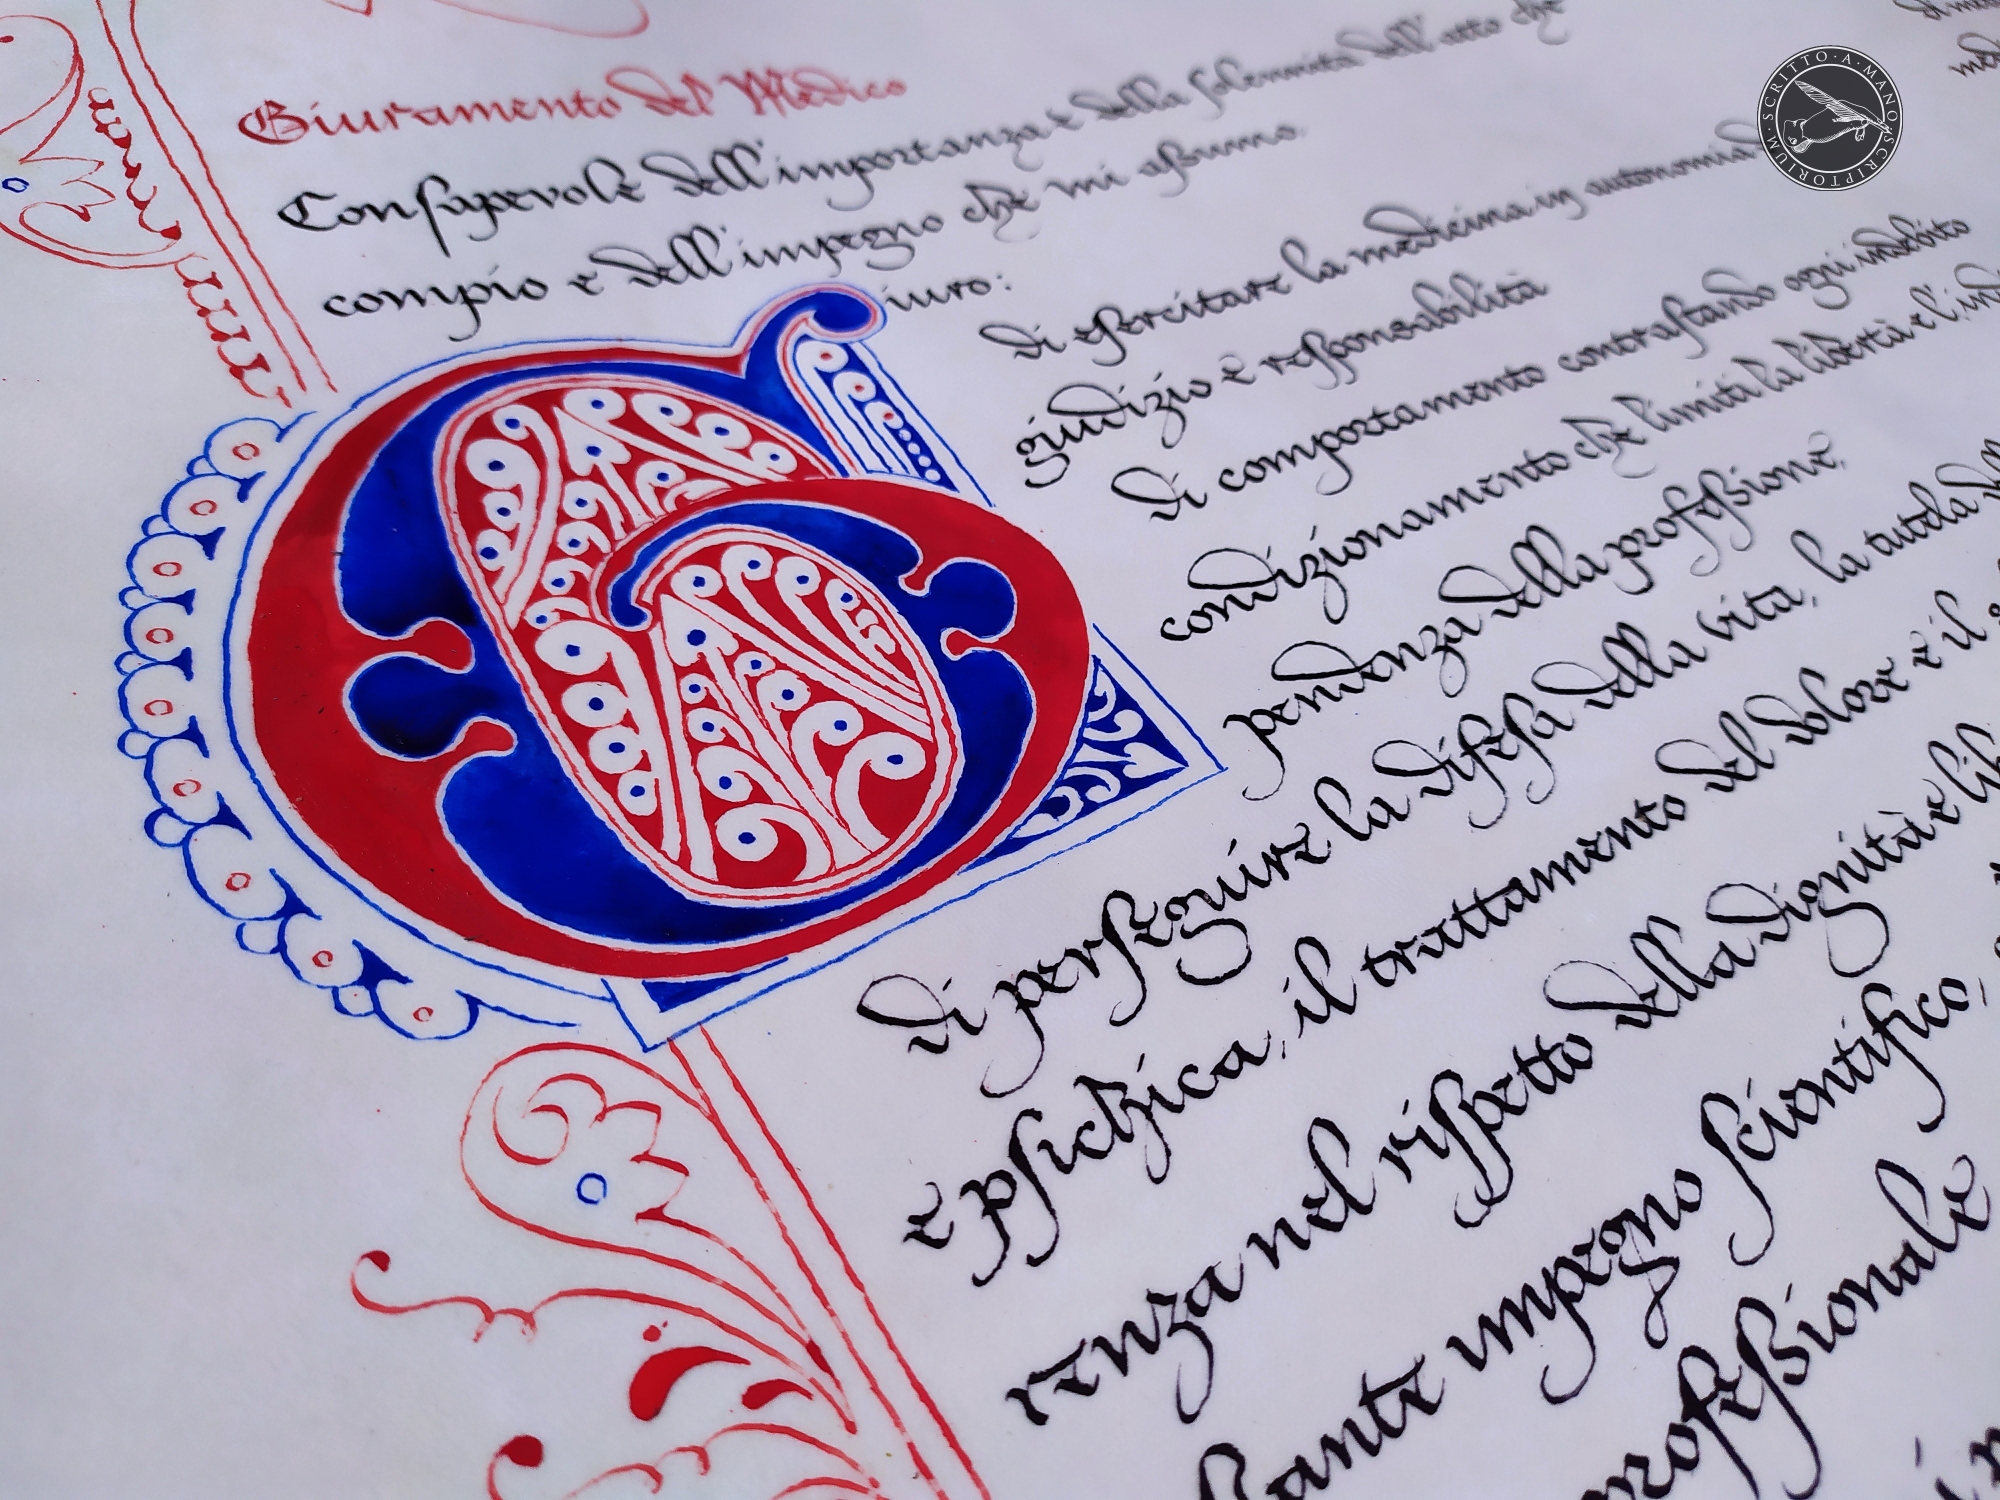 Giuramento del Medico
Consapevole dell'importanza e della solennità dell'atto che
compio e dell'impegno che mi assumo.
Giuro:
di esercitare la medicina in autonomia d
giudizio e responsabilità
di comportamento contrastando ogni indebito
condizionamento che limiti la libertà e l'ind
pendenza della professione.
di perseguire la difesa della vita, la tutela d
e psichica, il trattamento del dolore e il
renza nel rispetto della dignità e lib
stante impegno scientifico,
professionale
SCRITTO·A·MANO·SCRIPTORIUM·